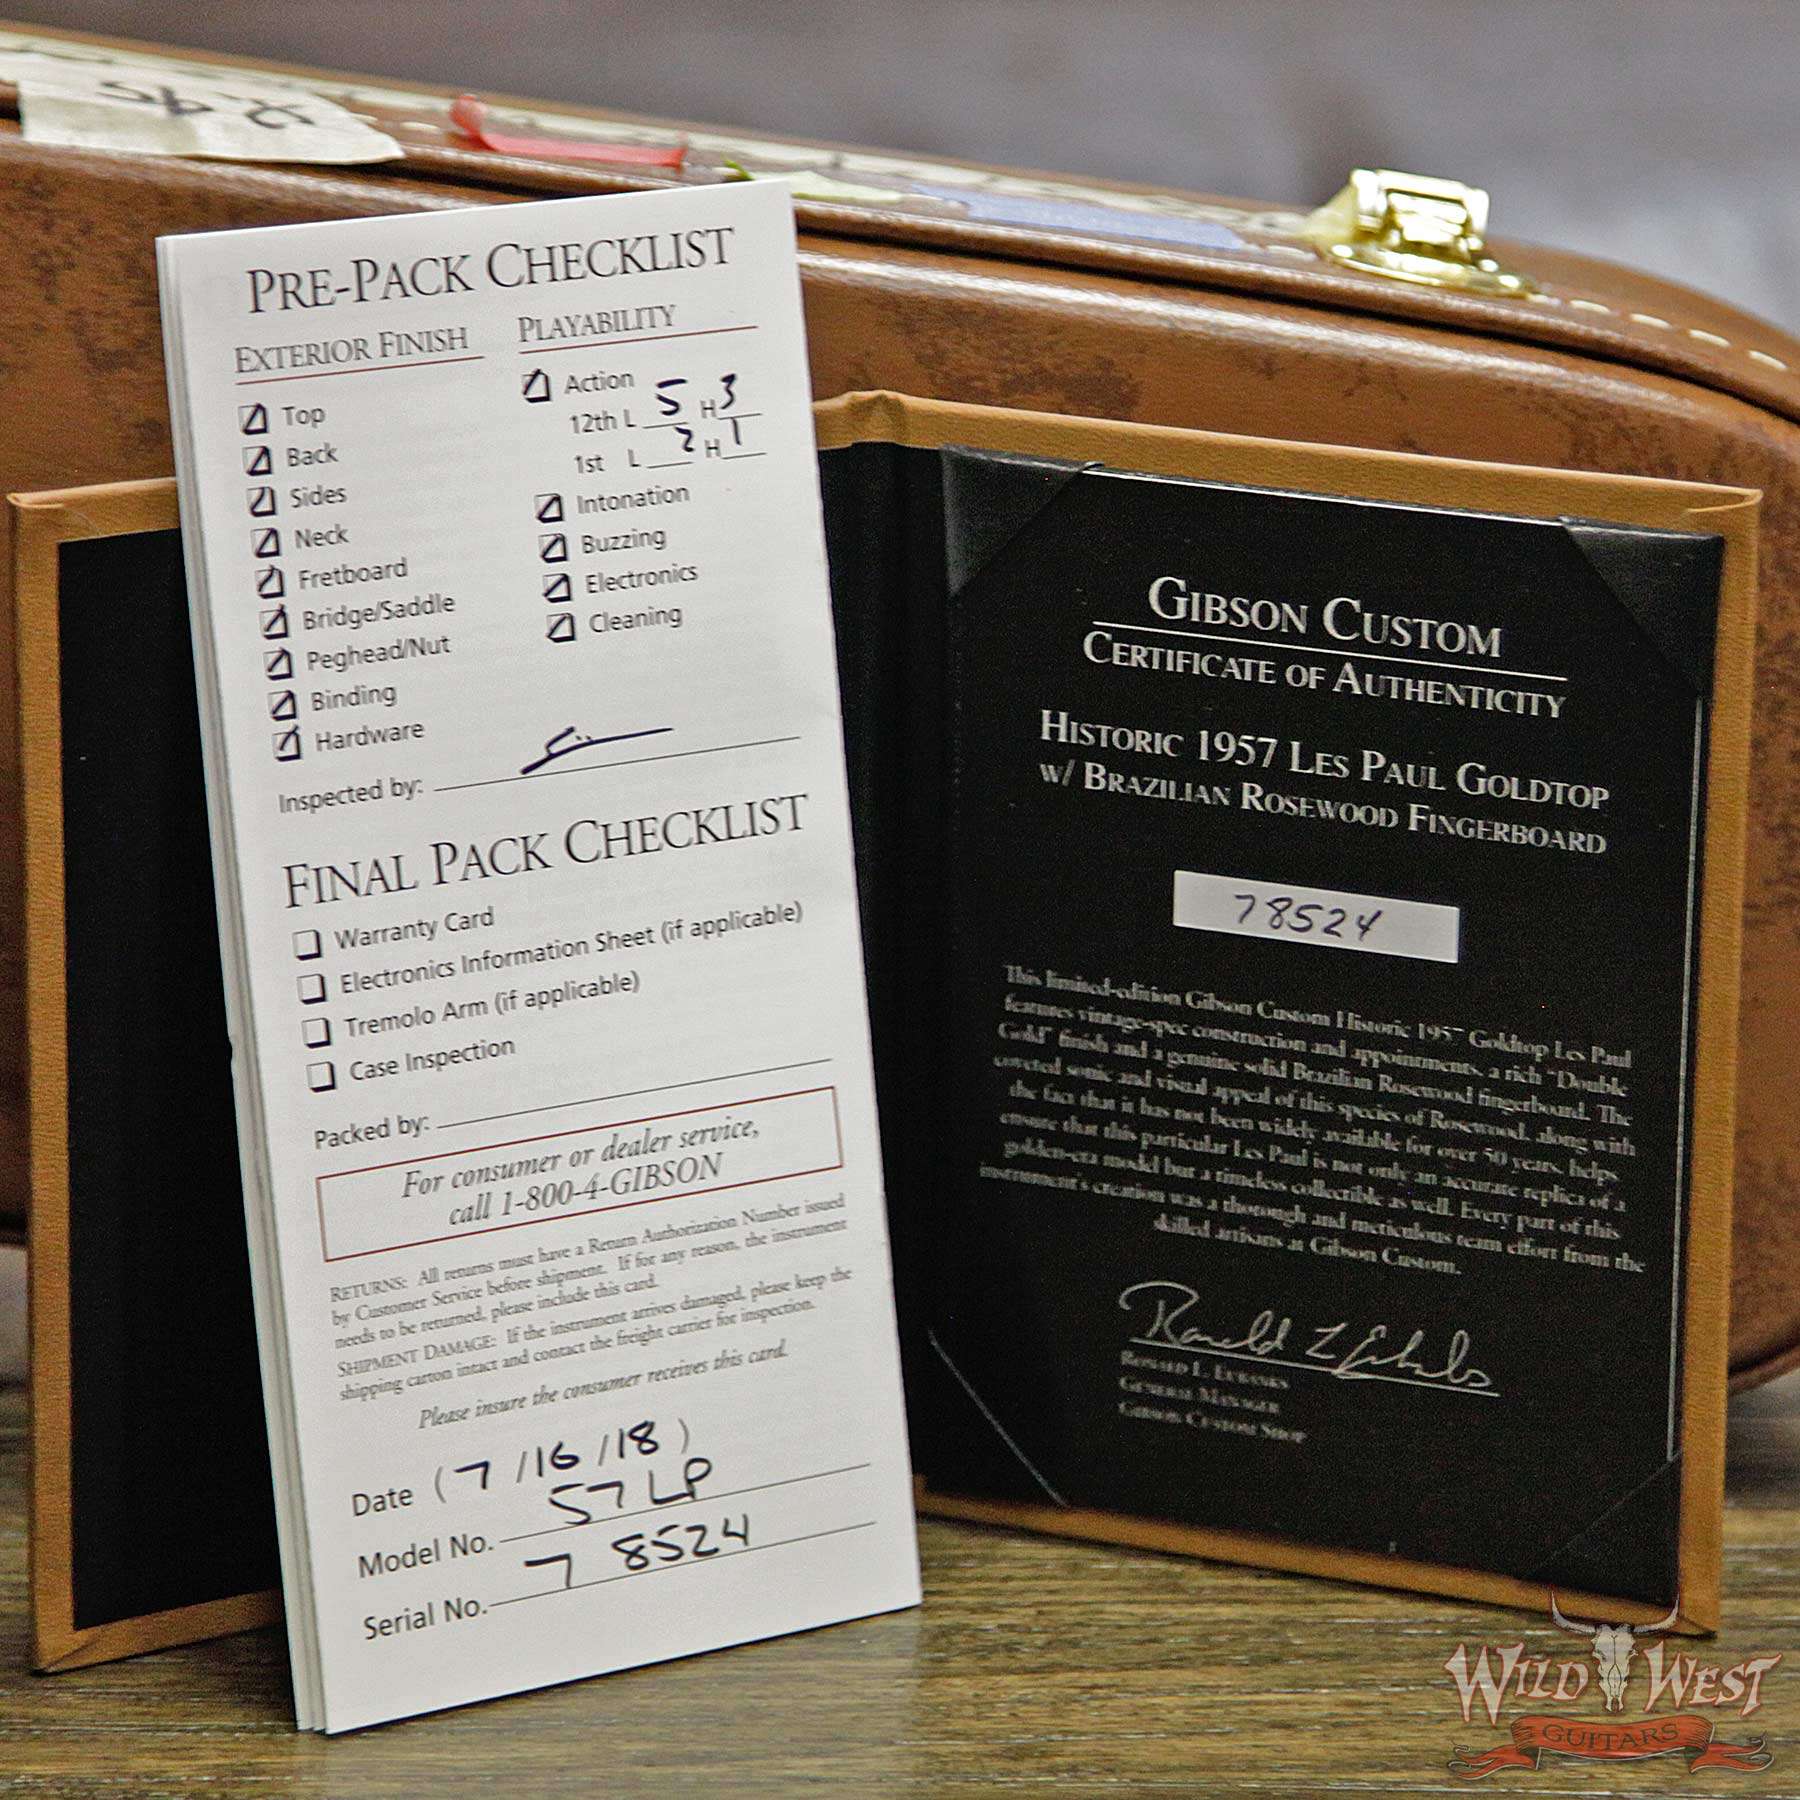 PRE-PACK CHECKLIST
EXTERIOR FINISH
Top
Back
Sides
Neck
Fretboard
Bridge/Saddle
Peghead/Nut
Binding
Hardware
PLAYABILITY
Action
12th L 5 H 3
1st L 2 H 1
Intonation
Buzzing
Electronics
Cleaning
Inspected by:
FINAL PACK CHECKLIST
Warranty Card
Electronics Information Sheet (if applicable)
Tremolo Arm (if applicable)
Case Inspection
Packed by:
For consumer or dealer service,
call 1-800-4-GIBSON
RETURNS: All returns must have a Return Authorization Number issued
by Customer Service before shipment. If for any reason, the instrument
needs to be returned, please include this card.
SHIPMENT DAMAGE: If the instrument arrives damaged, please keep the
shipping carton intact and contact the freight carrier for inspection.
Please insure the consumer receives this card.
Date (7/16/18)
Model No. 57 LP
Serial No. 7 8524
GIBSON CUSTOM
CERTIFICATE OF AUTHENTICITY
HISTORIC 1957 LES PAUL GOLDTOP
W/ BRAZILIAN ROSEWOOD FINGERBOARD
78524
This limited-edition Gibson Custom Historic 1957 Goldtop Les Paul
features vintage-spec construction and appointments, a rich "Double
Gold" finish and a genuine solid Brazilian Rosewood fingerboard. The
coveted sonic and visual appeal of this species of Rosewood, along with
the fact that it has not been widely available for over 50 years, helps
ensure that this particular Les Paul is not only an accurate replica of a
golden-era model but a timeless collectible as well. Every part of this
instrument's creation was a thorough and meticulous team effort from the
skilled artisans at Gibson Custom.
RONALD L. EUBANKS
GENERAL MANAGER
GIBSON CUSTOM SHOP
WILD WEST
GUITARS